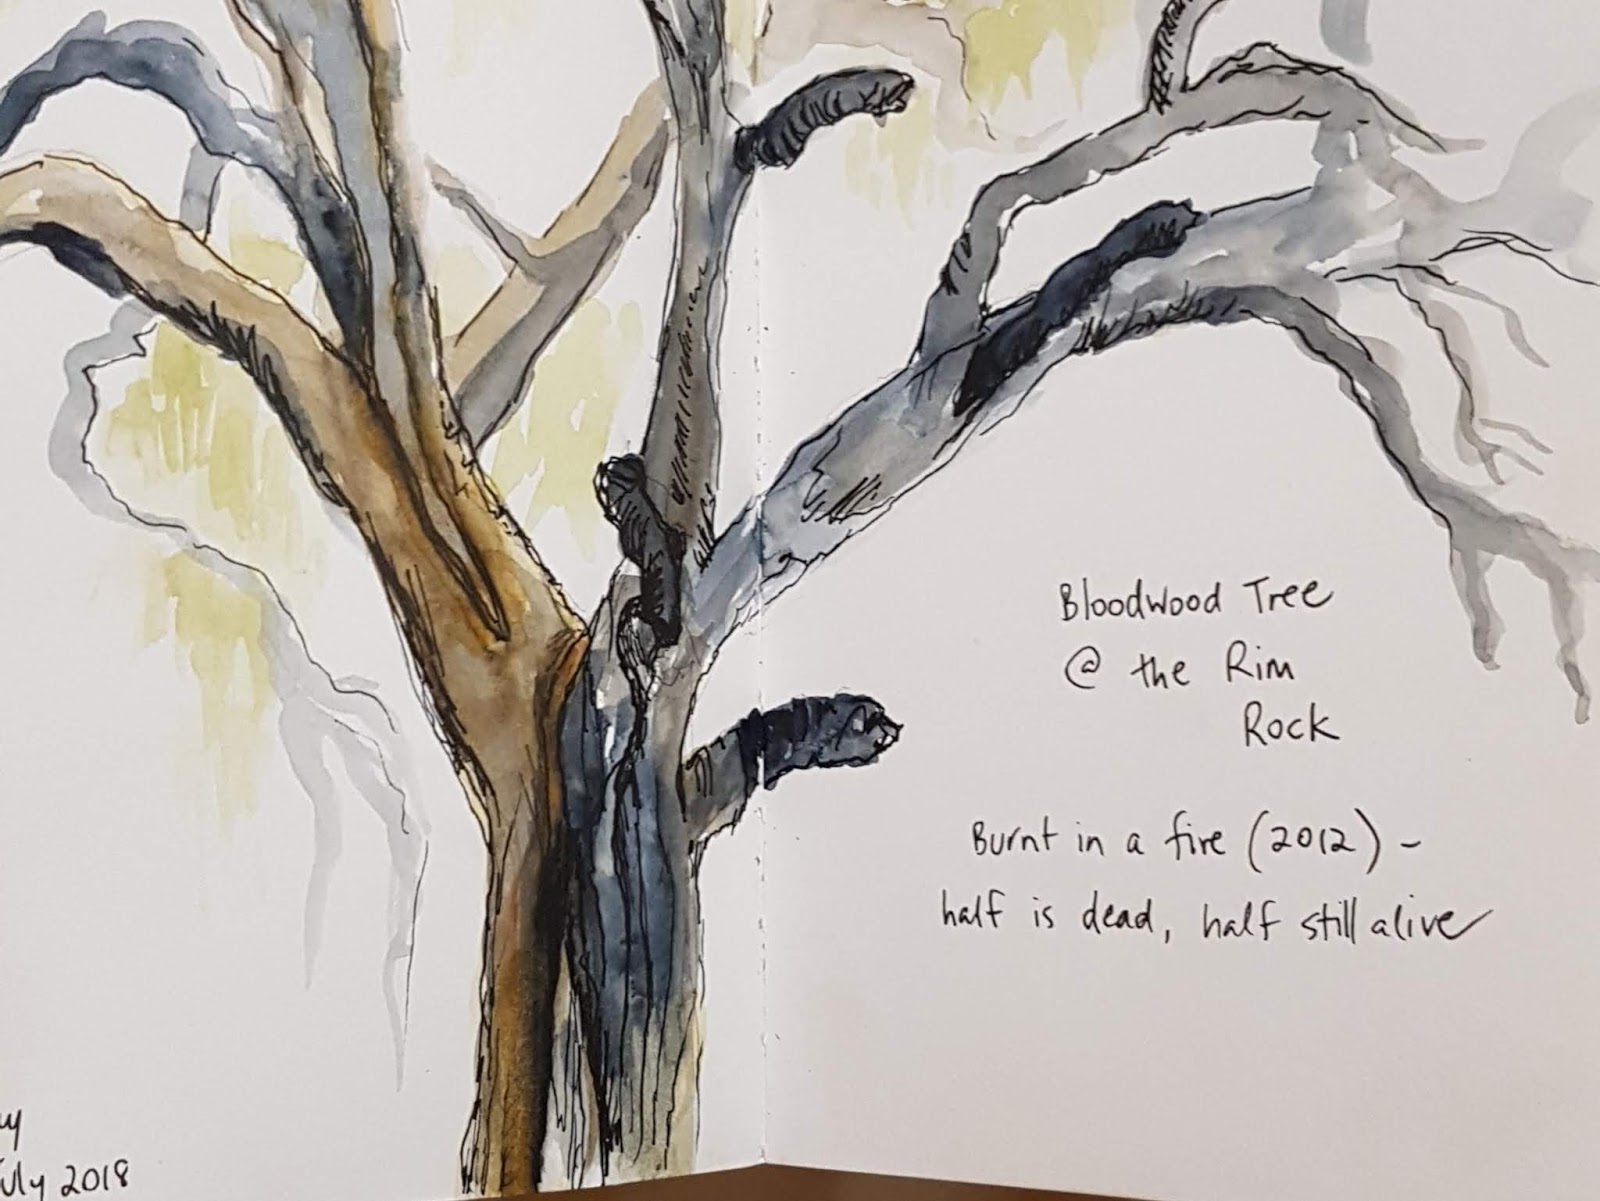 Bloodwood Tree
@ the Rim
Rock
Burnt in a fire (2012) -
half is dead, half still alive
July 2018